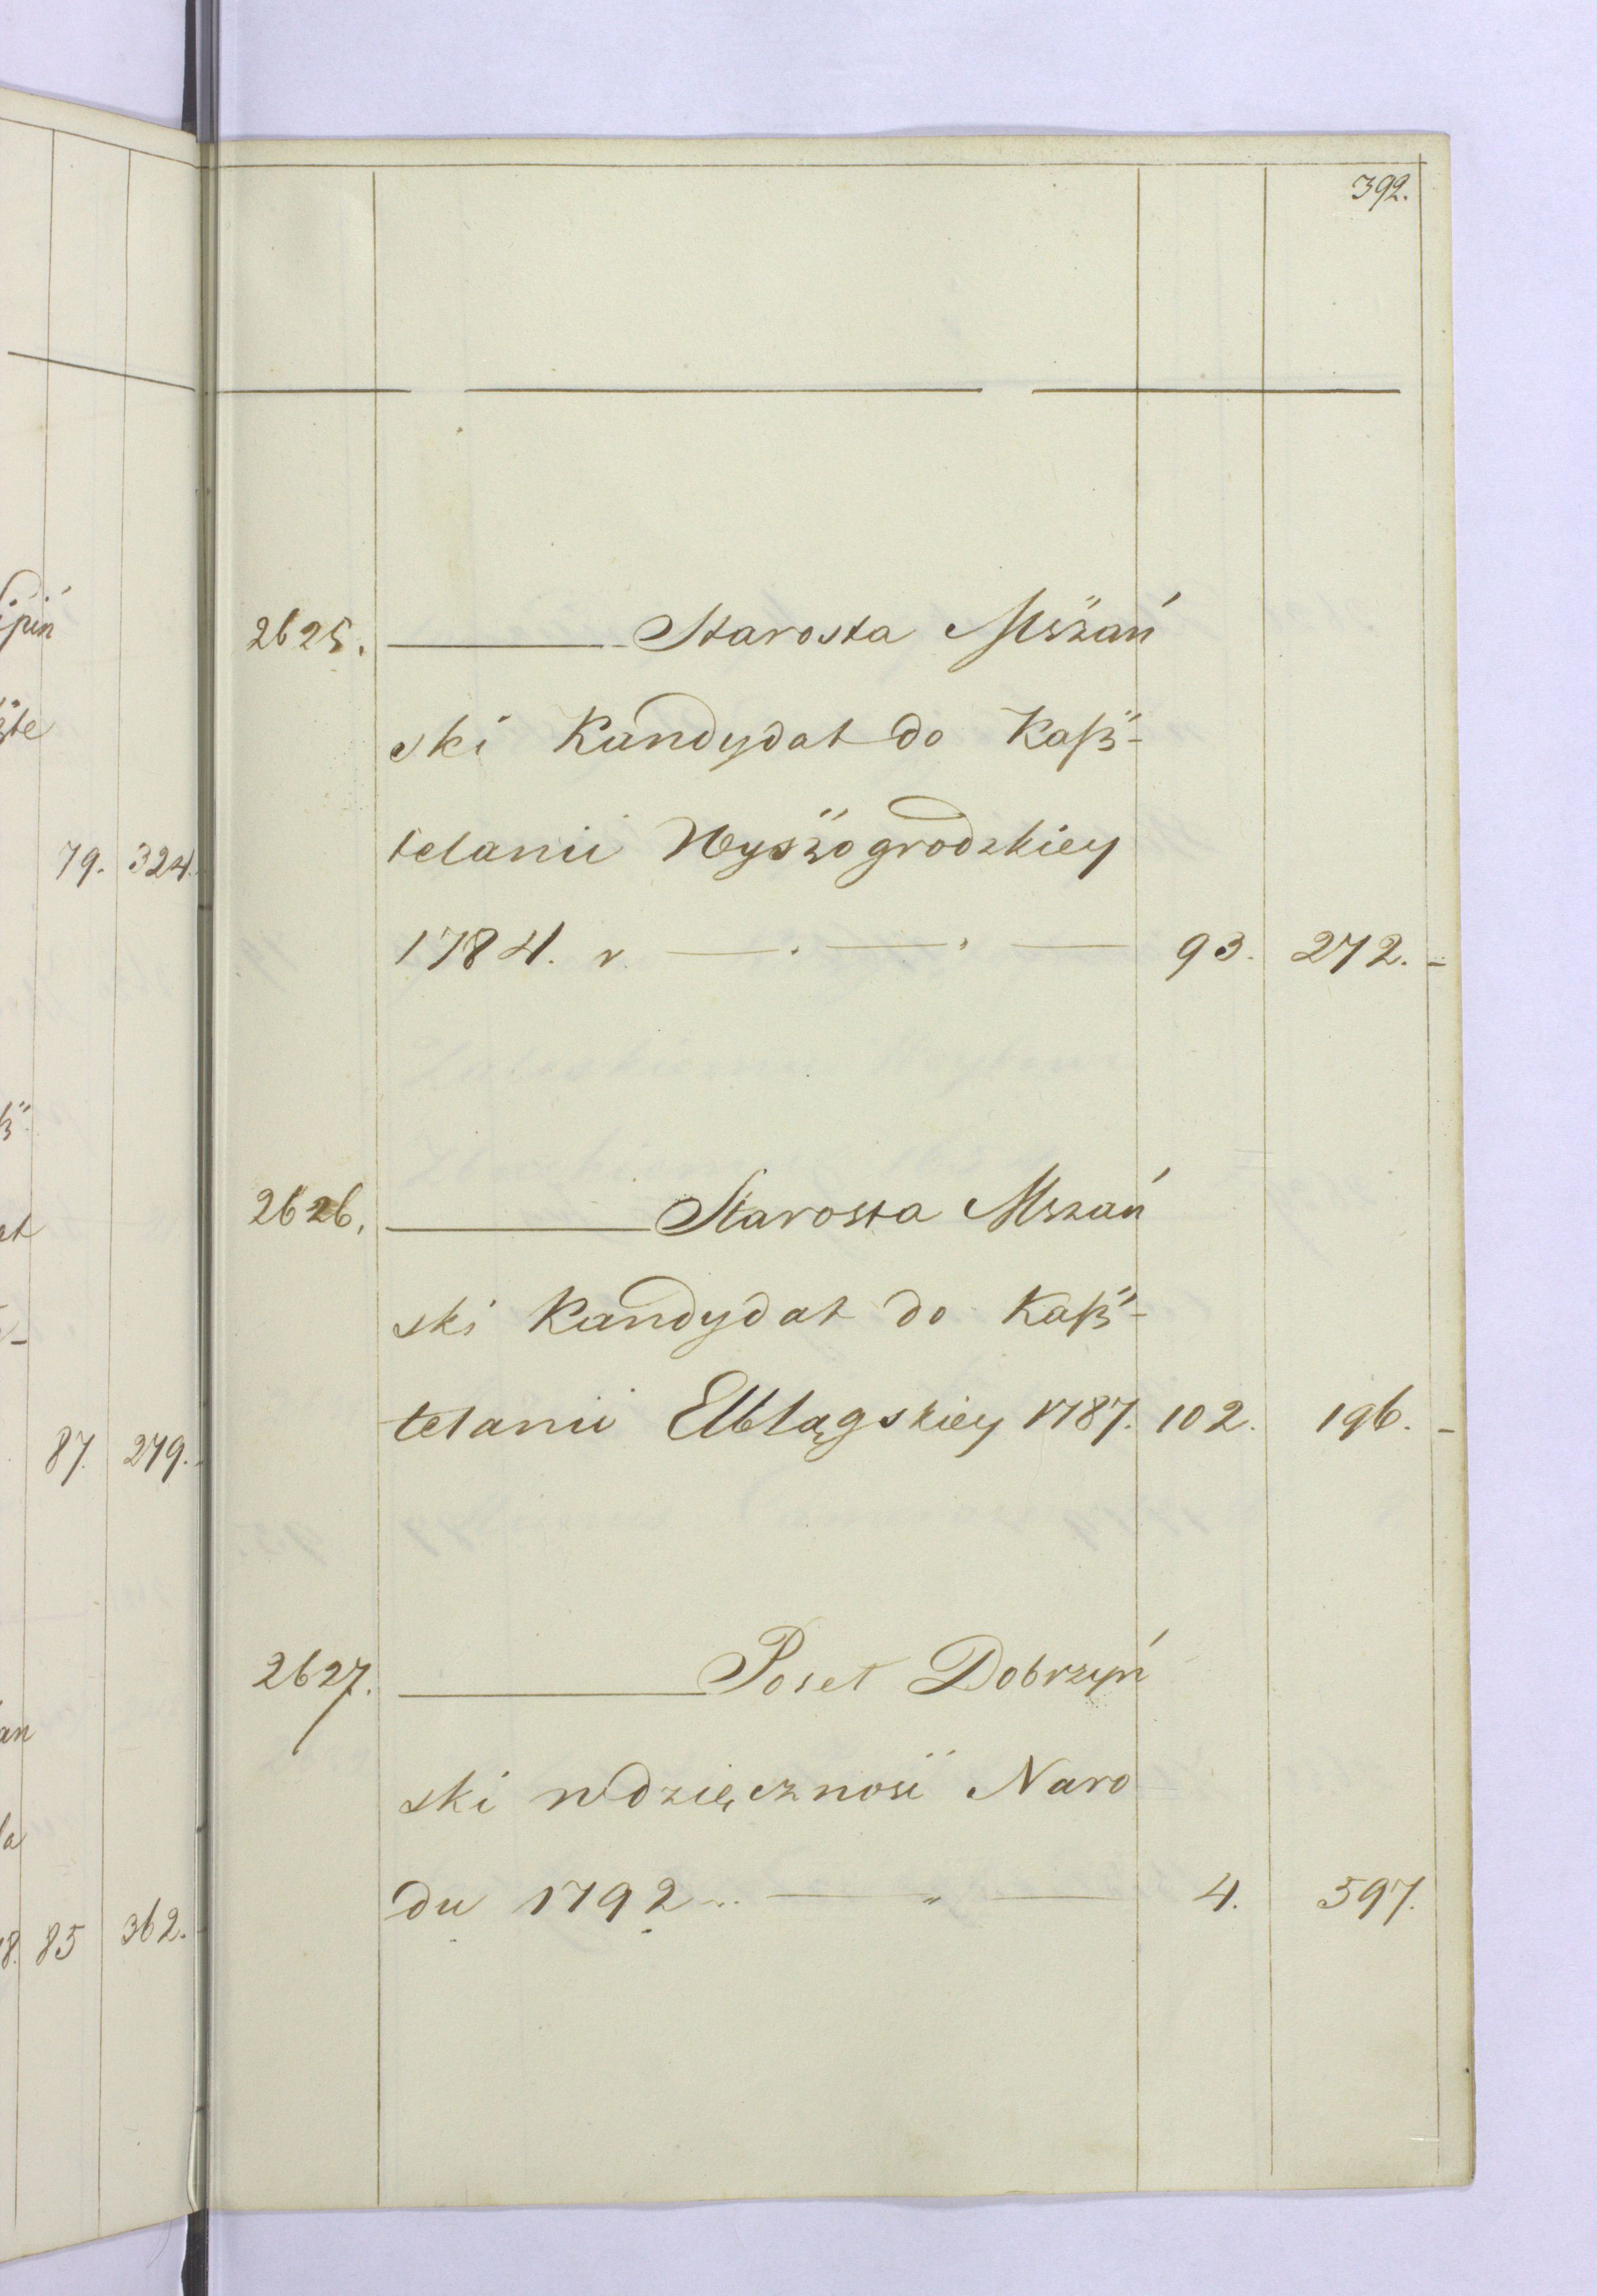 392.
ipiń
zte
79. 324.
87. 279.
an
la
18. 85 362.
2625. Starosta Mszań
ski Kandydat do Kasz-
telanii Wyszogrodzkiey
1784. r. 93. 272. -
2626. Starosta Mszań
ski Kandydat do Kasz-
telanii Elblągskiey 1787. 102. 196. -
2627. Poseł Dobrzyń
ski wdzięcznosć Naro
du 1792 4. 597.